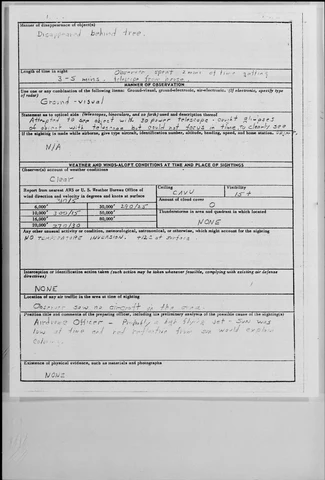 Manner of disappearance of object(s)
Disappeared behind tree.
Length of time in sight
Observer spent 2 min of time getting
3-5 mins. telescope from house.
MANNER OF OBSERVATION
Use one or any combination of the following items: Ground-visual, ground-electronic, air-electronic. (If electronic, specify type of radar)
Ground-visual
Statement as to optical aids (Telescopes, binoculars, and so forth) used and description thereof
Attempted to see object with 30 power telescope - caught glimpses
of object with telescope but could not focus in time to clearly see
If the sighting is made while airborne, give type aircraft, identification number, altitude, heading, speed, and home station.
N/A
WEATHER AND WINDS-ALOFT CONDITIONS AT TIME AND PLACE OF SIGHTINGS
Observer(s) account of weather conditions
Clear
Report from nearest AWS or U. S. Weather Bureau Office of wind direction and velocity in degrees and knots at surface
Ceiling
CAVU
Visibility
15+
6,000'
10,000'
16,000'
20,000'
30,000'
50,000'
80,000'
Amount of cloud cover
0
Thunderstorms in area and quadrant in which located
NONE
Any other unusual activity or condition, meteorological, astronomical, or otherwise, which might account for the sighting
NO TEMPERATURE INVERSION. at surface
Interception or identification action taken (such action may be taken whenever feasible, complying with existing air defense directives)
NONE
Location of any air traffic in the area at time of sighting
Observer saw no aircraft in the area.
Position title and comments of the preparing officer, including his preliminary analysis of the possible cause of the sighting(s)
Airdrome Officer - Probably a high flying jet - Sun was
low at time and red reflection from sun would explain
coloring.
Existence of physical evidence, such as materials and photographs
NONE